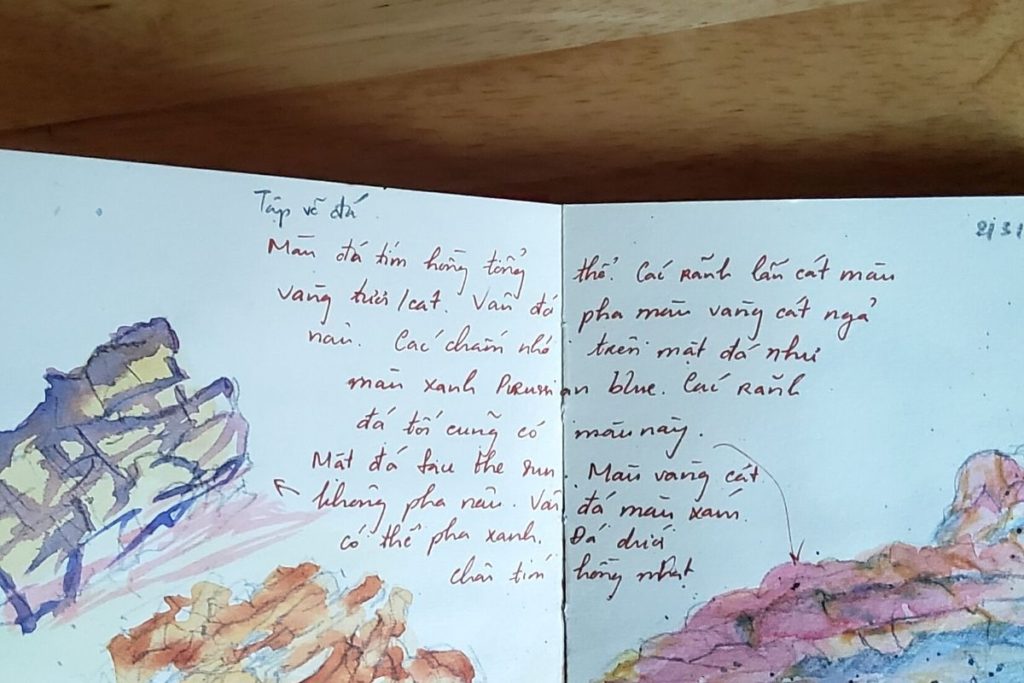 Tập vẽ đá
2/3/
Màu đá tím hồng tổng thể. Các rãnh lẫn cát màu
vàng tươi/cat. Vân đá pha màu vàng cát ngả
nâu. Các chấm nhỏ trên mặt đá như
màu xanh Purussian blue. Các rãnh
đá tối cũng có màu này.
Mặt đá face the sun. Màu vàng cát
không pha nâu. Vân đá màu xám
có thể pha xanh. Đá dưới
chân tím hồng nhạt